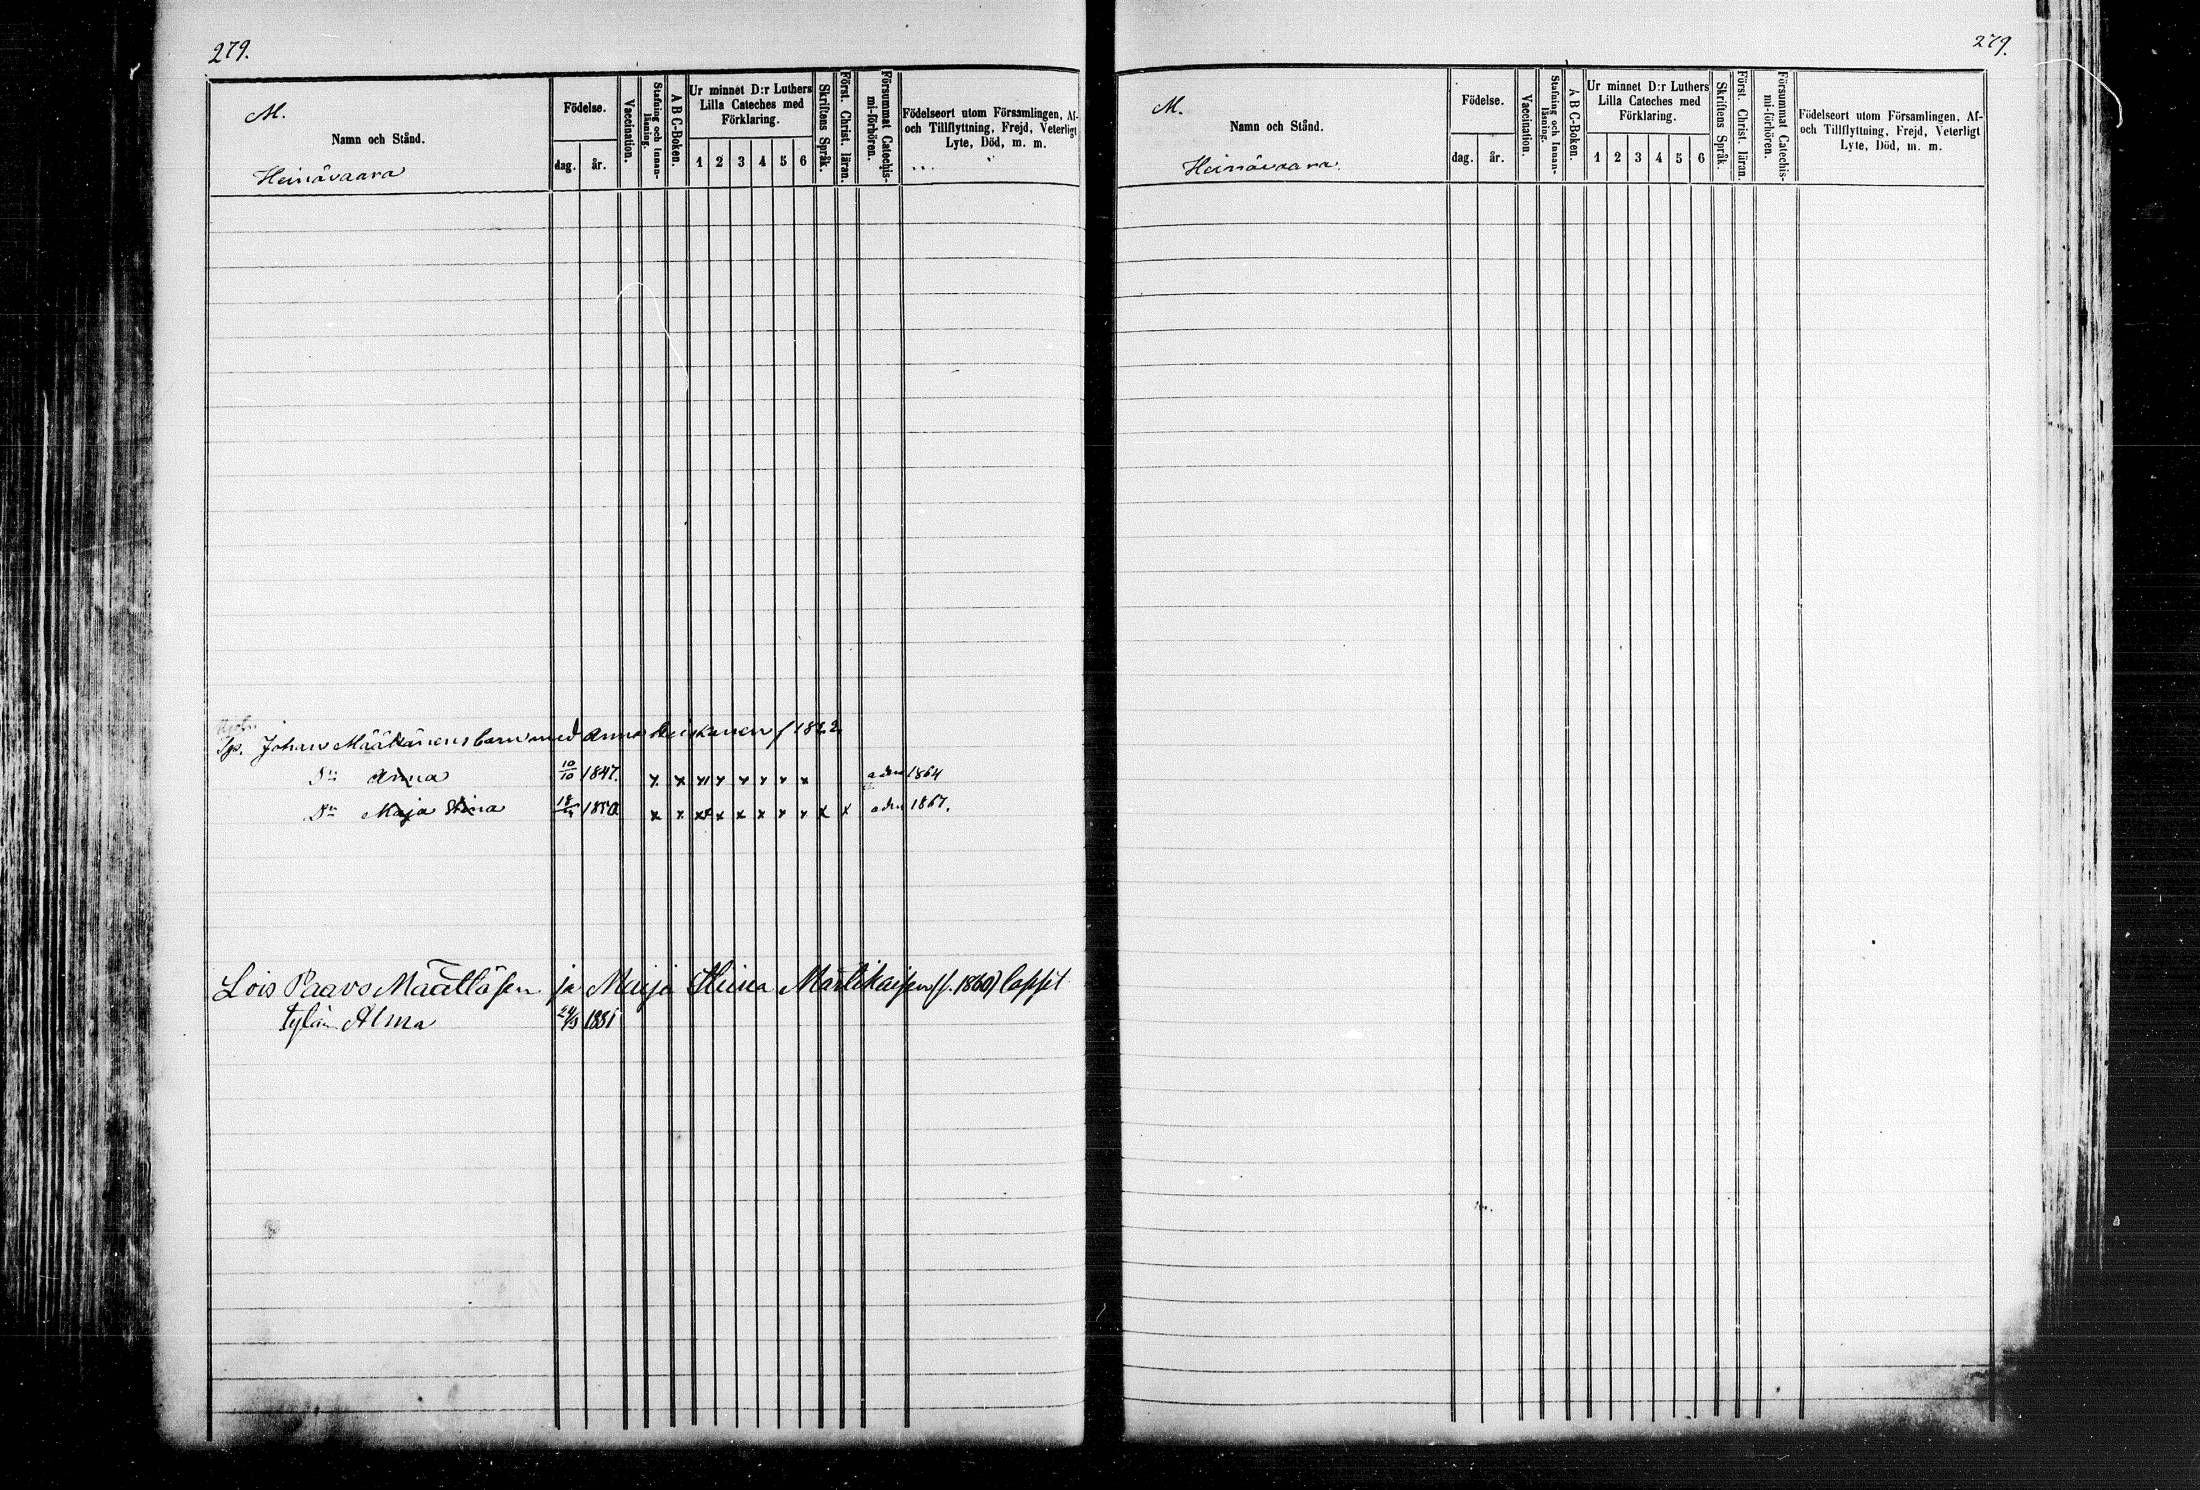 279.
M.
Namn och Stånd.
Heinävaara
Födelse.
dag. år.
Vaccination.
Stafning och Innan-
läsning.
A B C-Boken.
Ur minnet D:r Luthers
Lilla Cateches med
Förklaring.
1 2 3 4 5 6
Skriftens Språk.
Först. Christ. läran.
Försummat Catechis-
mi-förhören.
Födelseort utom Församlingen, Af-
och Tillflyttning, Frejd, Veterligt
Lyte, Död, m. m.
Sp. Johan Määttänens barn med Anna f 1822
Dr Anna 10/10 1847. x x x x x x x x 1864
Dr Maja Stina 18 1850 x x x x x x x x x x 1867.
Lois Paavo Määttäsen ja Maija Stiina Martikaisen (f. 1860) lapset
tytär Alma 24/3 1881
279.
M.
Namn och Stånd.
Heinävaara.
Födelse.
dag. år.
Vaccination.
Stafning och Innan-
läsning.
A B C-Boken.
Ur minnet D:r Luthers
Lilla Cateches med
Förklaring.
1 2 3 4 5 6
Skriftens Språk.
Först. Christ. läran.
Försummat Catechis-
mi-förhören.
Födelseort utom Församlingen, Af-
och Tillflyttning, Frejd, Veterligt
Lyte, Död, m. m.